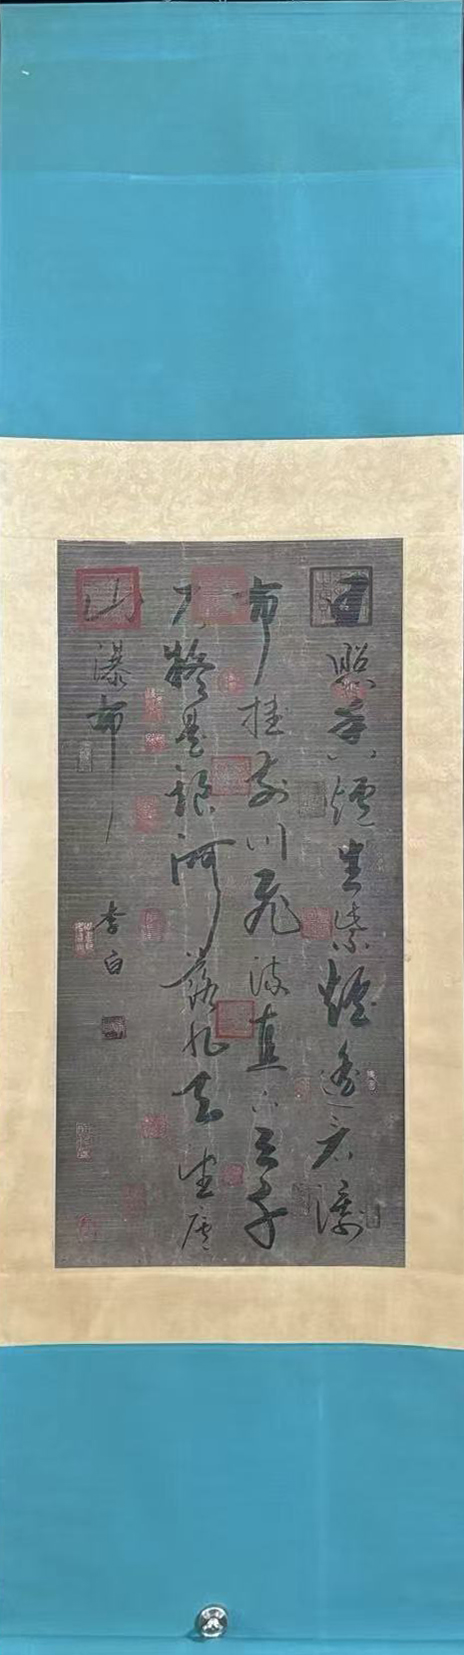 日照香爐生紫煙遙看瀑
布挂前川飛流直下三千
尺疑是銀河落九天望廬
山瀑布
李白